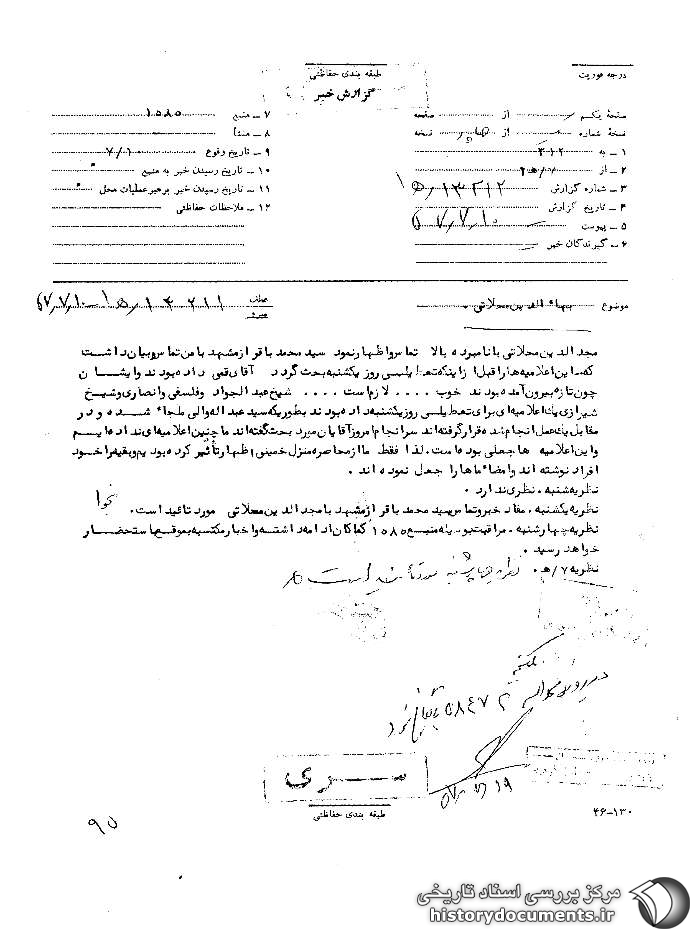 درجه فوریت
طبقه بندی حفاظتی
گزارش خبر
صفحهٔ یکم از صفحه
نسخهٔ شماره از نسخه
۱ ــ به ۳۱۲
۲ ــ از
۳ ــ شماره گزارش
۴ ــ تاریخ گزارش ۵۷٫۷٫۱۰
۵ ــ پیوست
۶ ــ گیرندگان خبر
۷ ــ منبع ۱۵۸۵
۸ ــ منشأ
۹ ــ تاریخ وقوع ۷/۱
۱۰ ــ تاریخ رسیدن خبر به منبع
۱۱ ــ تاریخ رسیدن خبر برهبر عملیات محل
۱۲ ــ ملاحظات حفاظتی
موضوع بهاء الدین محلاتی
مجد الدین محلاتی با نامبرده بالا تماس و اظهار نمود سید محمد باقر از مشهد با من تماس و بیان داشت
که این اعلامیه ها را قبل از اینکه تعطیلی روز یکشنبه بحث گردد آقای قمی داده بودند و ایشان
چون تازه بیرون آمده بودند خوب .... لازم است .... شیخ عبد الجواد و فلسفی و انصاری و شیخ
شیرازی یك اعلامیه ای برای تعطیلی روز یکشنبه داده بودند بطوریکه سید عبد اله والی ملجاء شده و در
مقابل یك عمل انجام شده قرار گرفته اند سرانجام امروز آقایان مورد بحث گفته اند ما چنین اعلامیه ای نداده ایم
و این اعلامیه ها جعلی بوده است، لذا فقط ما از محاصره منزل خمینی اظهار تأثر کرده بودیم و بقیه را خود
افراد نوشته اند و امضاء ماها را جعل نموده اند .
نظریه شنبه . نظری ندارد .
نظریه یکشنبه . مفاد خبر و تماس سید محمد باقر از مشهد با مجد الدین محلاتی مورد تائید است .
نظریه چهارشنبه . مراقبت بوسیله منبع ۱۵۸۵ کماکان ادامه داشته و اخبار مکتسبه بموقع باستحضار
خواهد رسید .
نظریه ۷/ه . نظریه چهارشنبه مورد تأیید است
سری
طبقه بندی حفاظتی
۴۶-۱۳۰
۹۵
مرکز بررسی اسناد تاریخی
historydocuments.ir